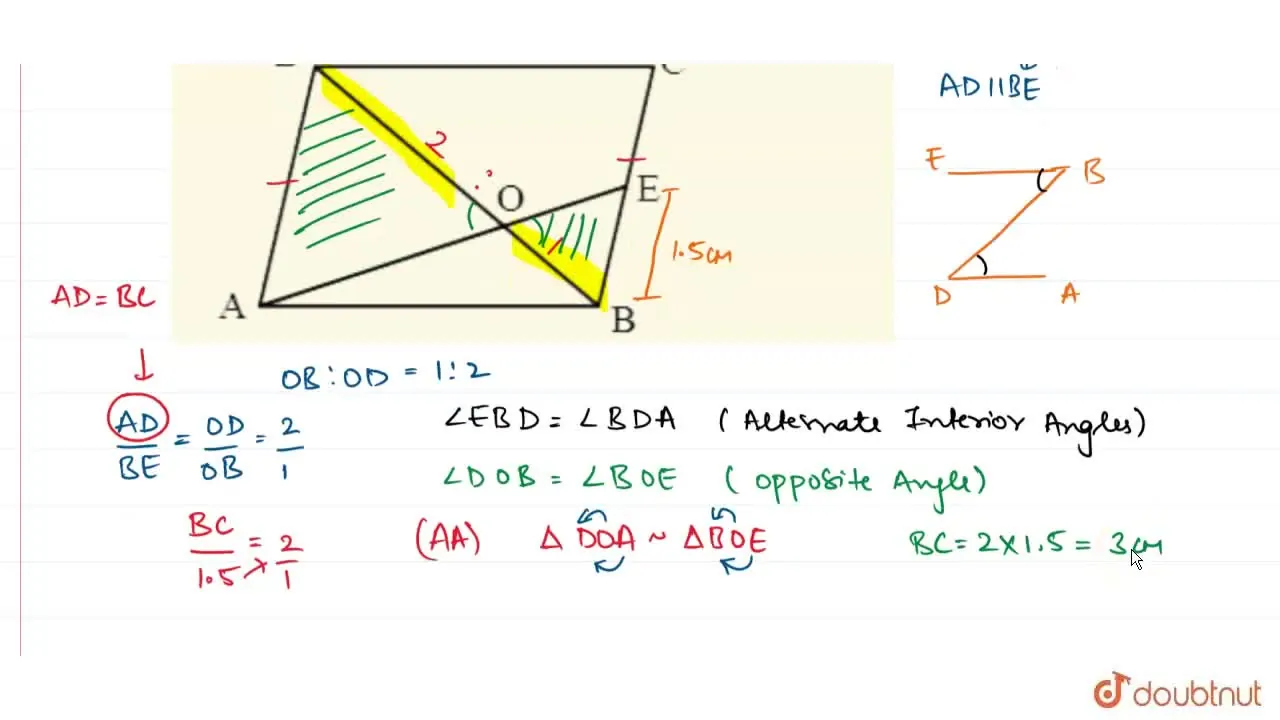 AD || BE
2
O
E
1.5 cm
1
A
B
E
B
D
A
AD = BC
OB : OD = 1 : 2
AD/BE = OD/OB = 2/1
∠EBD = ∠BDA (Alternate Interior Angles)
∠DOB = ∠BOE (opposite Angle)
BC/1.5 = 2/1
(AA) Δ DOA ~ Δ BOE
BC = 2 × 1.5 = 3 cm
doubtnut